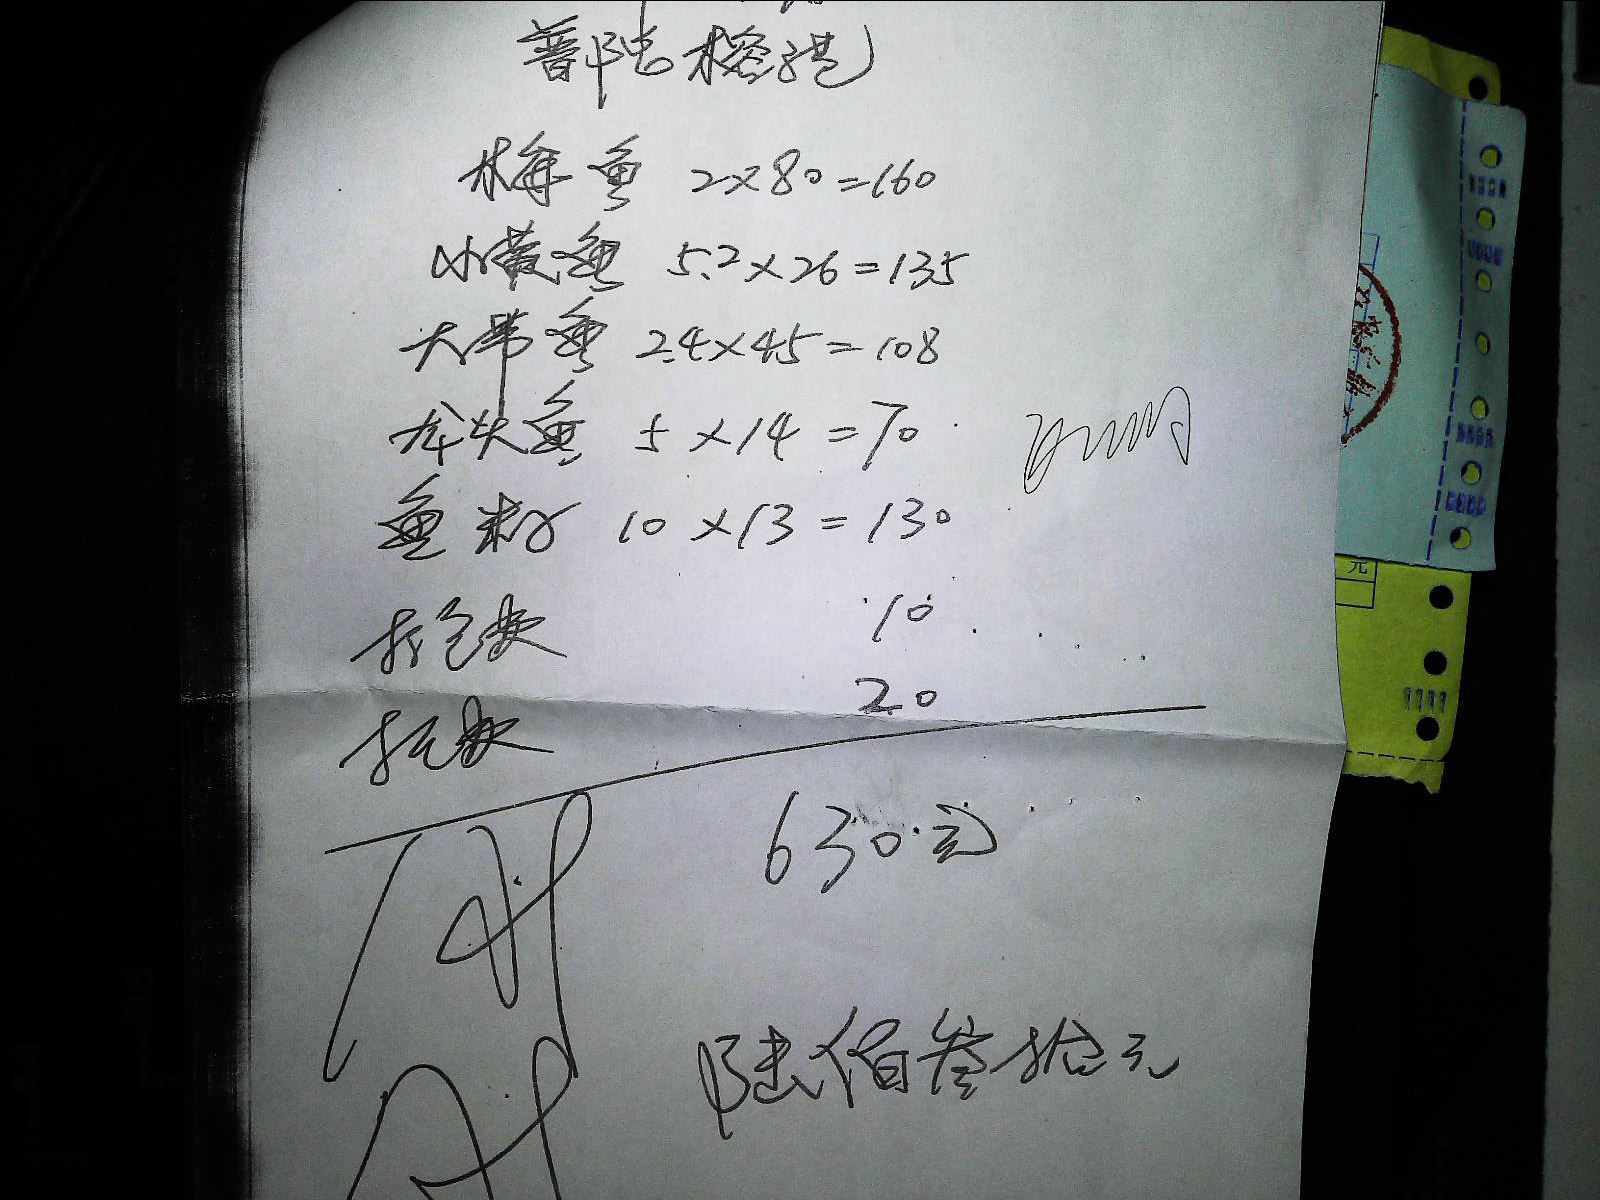 普陀榕港
梅鱼 2×80=160
小黄鱼 5.2×26=135
大带鱼 2.4×45=108
龙头鱼 5×14=70
鱼籽 10×13=130
打包费 10
托运费 20
630元
陆佰叁拾元
元